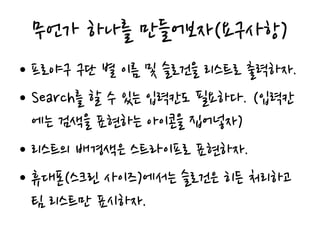 무언가 하나를 만들어보자(요구사항)
• 프로야구 구단 별 이름 및 슬로건을 리스트로 출력하자.
• Search를 할 수 있는 입력칸도 필요하다. (입력칸
에는 검색을 표현하는 아이콘을 집어넣자)
• 리스트의 배경색은 스트라이프로 표현하자.
• 휴대폰(스크린 사이즈)에서는 슬로건은 히든 처리하고
팀 리스트만 표시하자.